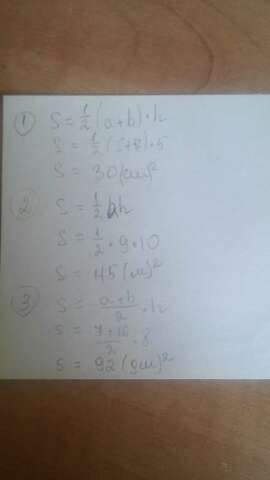 ① S = 1/2 (a+b)·h
S = 1/2 ( +8)·5
S = 30 (см)²
② S = 1/2 h
S = 1/2 · 9 · 10
S = 45 (м)²
③ S = a+b/2 · h
S = 7+16/2 · 8
S = 92 (дм)²